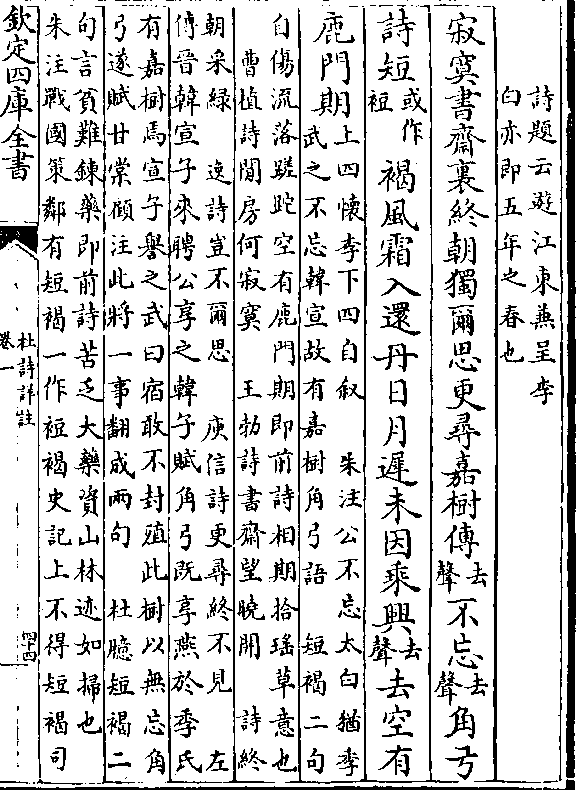 詩題云遊江東兼呈李
白亦即五年之春也
寂寞書齋裏終朝獨爾思更尋嘉樹傳去聲不忘去聲角弓
詩短或作裋褐風霜入還丹日月遲未因乘興去聲去空有
鹿門期上四懷李下四自叙　朱注公不忘太白猶季
武之不忘韓宣故有嘉樹角弓語　短褐二句
自傷流落蹉跎空有鹿門期即前詩相期拾瑤草意也
曹植詩閒房何寂寞　王勃詩書齋望曉開　詩終
朝采綠　逸詩豈不爾思　庾信詩更尋終不見　左
傳晉韓宣子來聘公享之韓子賦角弓既享燕於季氏
有嘉樹焉宣子譽之武曰宿敢不封殖此樹以無忘角
弓遂賦甘棠顧注此將一事翻成兩句　杜臆短褐二
句言貧難鍊藥即前詩苦乏大藥資山林迹如掃也
朱注戰國策鄰有短褐一作裋褐史記上不得短褐司
欽定四庫全書
杜詩詳註
卷一
四十四